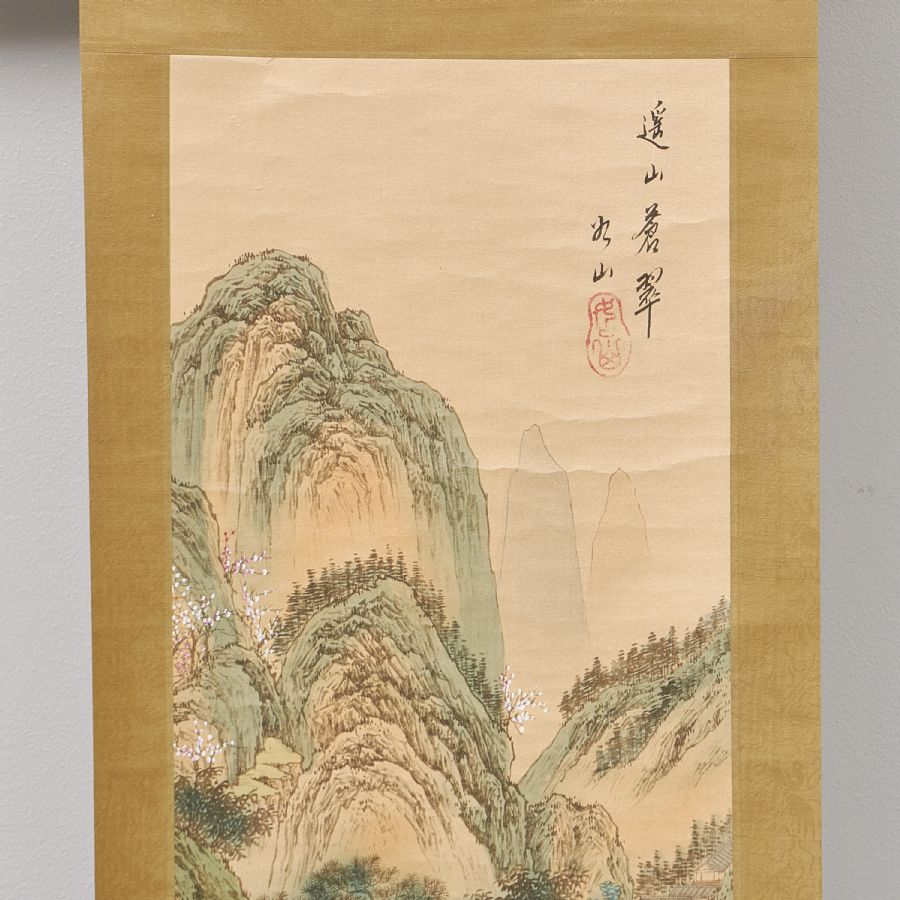 遥山蒼翠
如山